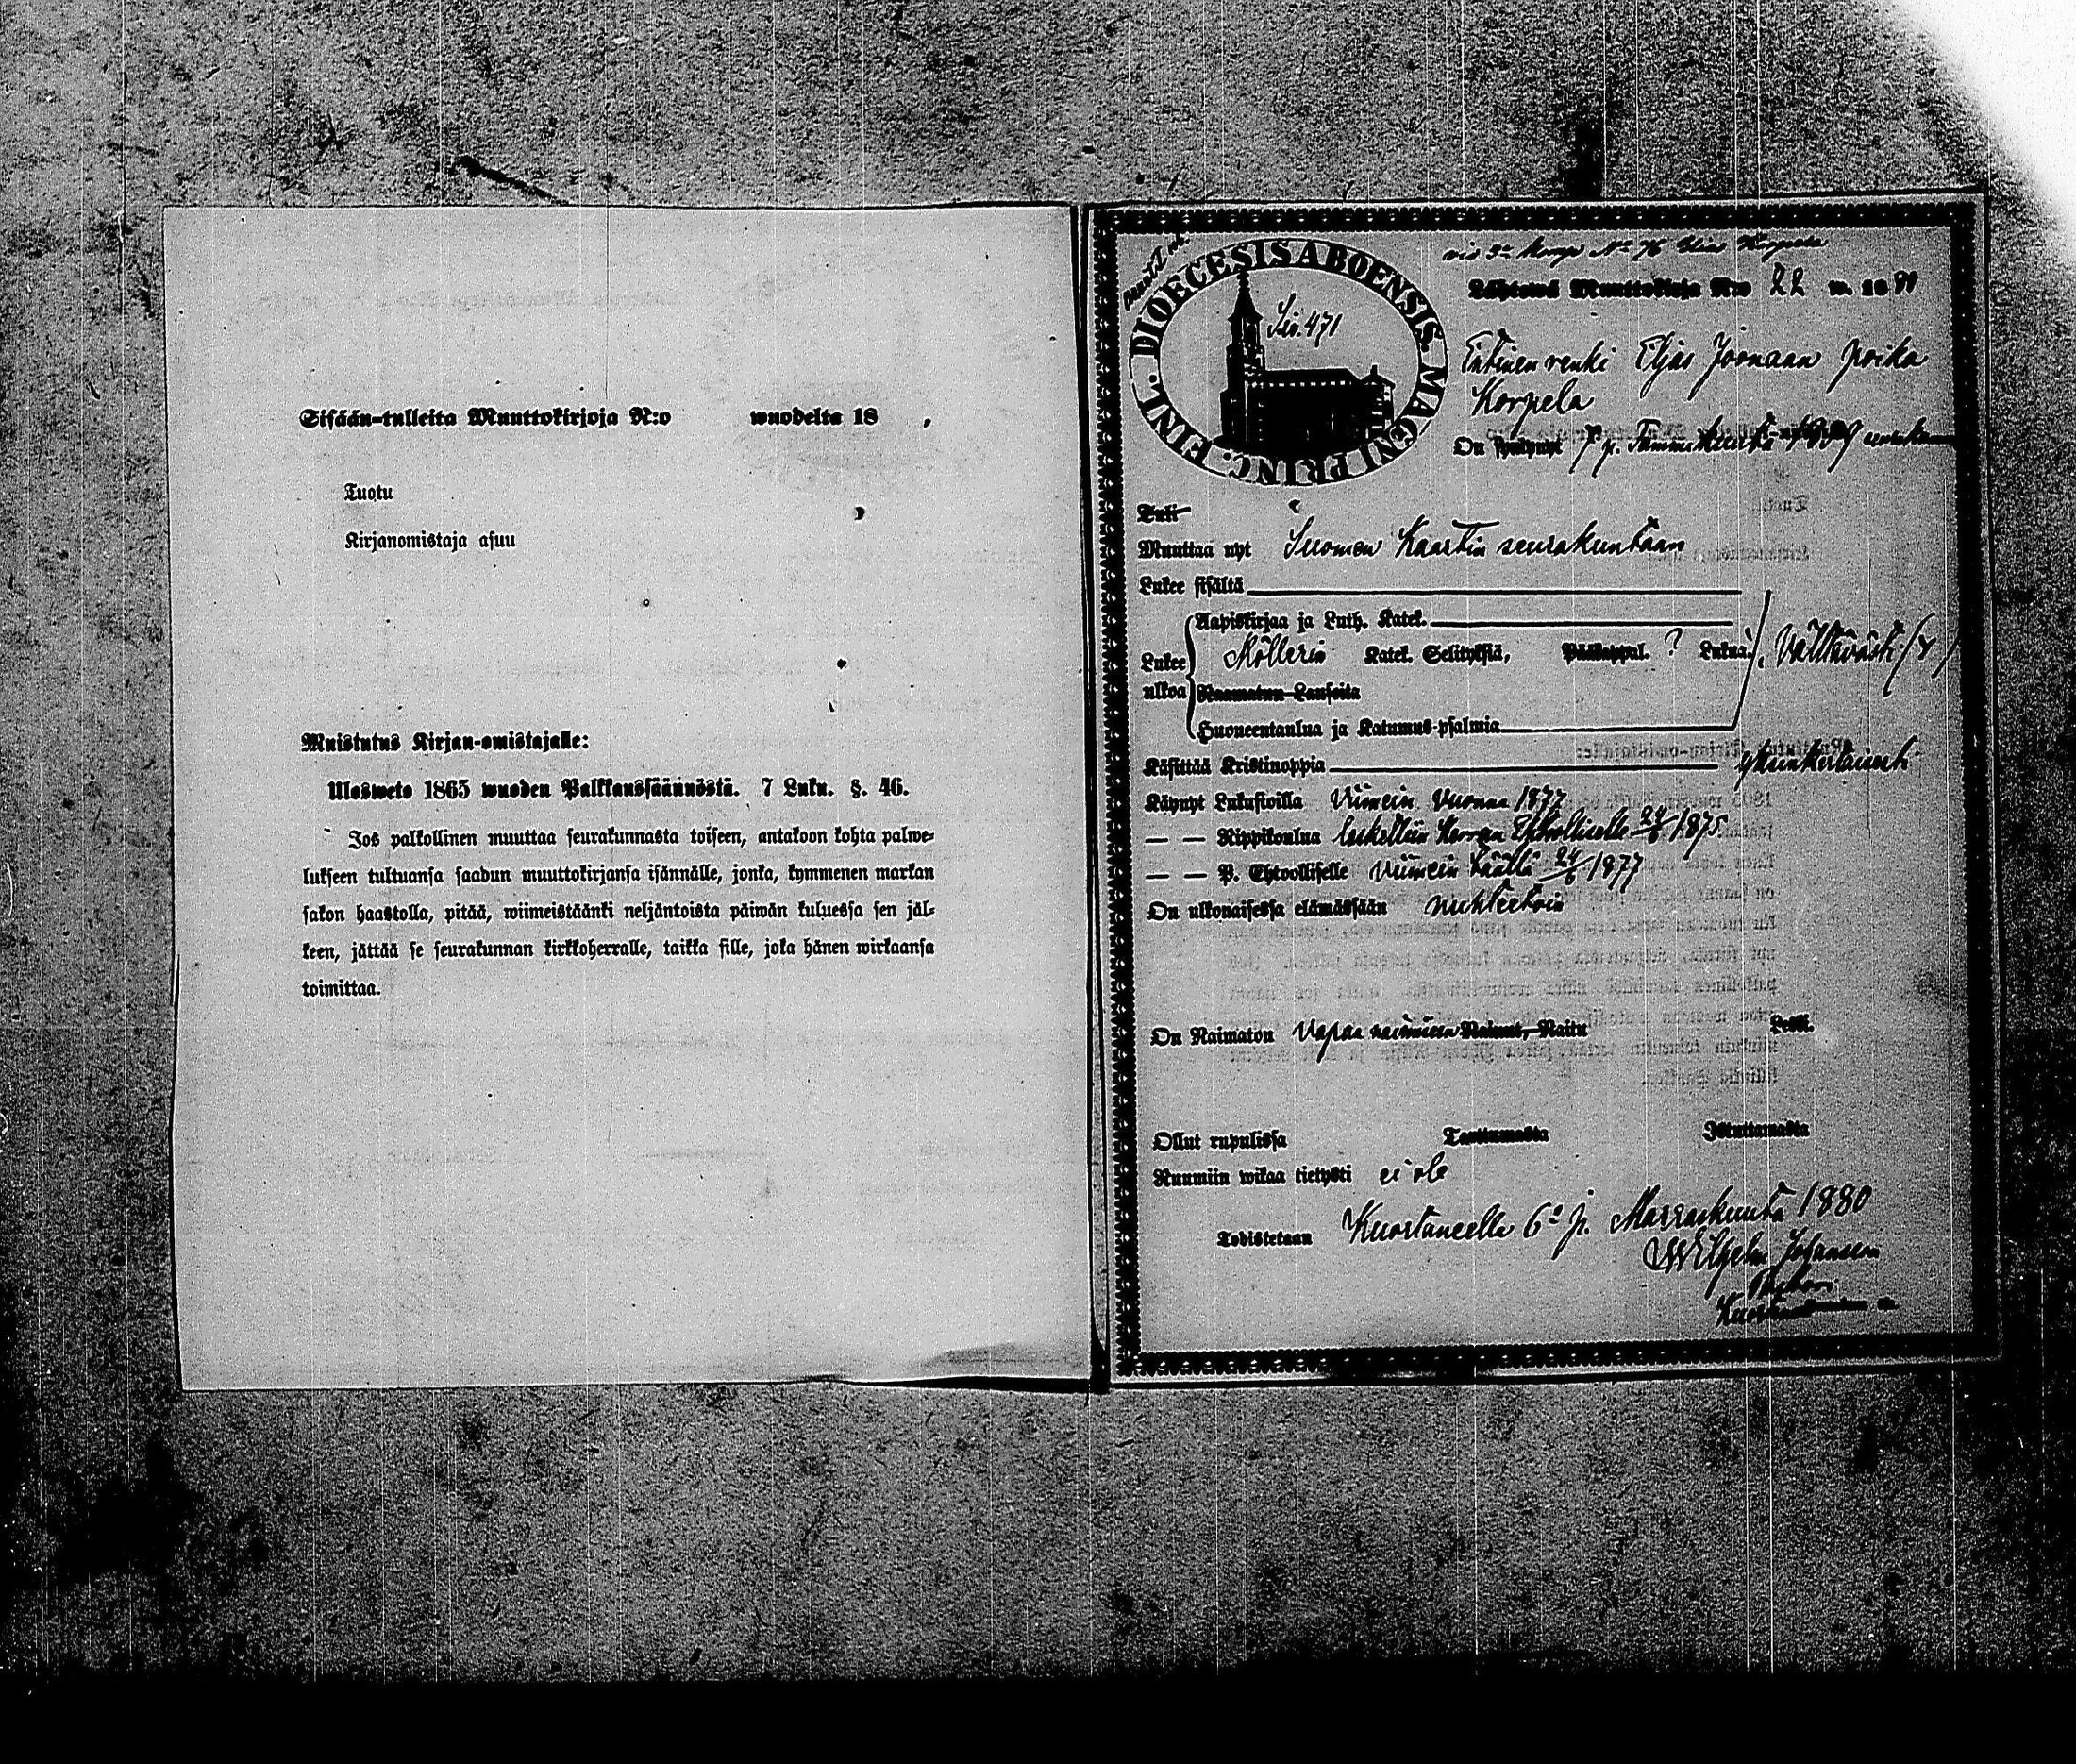 Sisään-tulleita Muuttokirjoja N:o wuodelta 18 .
Tuotu
Kirjanomistaja asuu
Muistutus Kirjan-omistajalle:
Ulosweto 1865 wuoden Palkkaussäännöstä. 7 Luku. §. 46.
Jos palkollinen muuttaa seurakunnasta toiseen, antakoon kohta palwe-
lukseen tultuansa saadun muuttokirjansa isännälle, jonka, kymmenen markan
sakon haastolla, pitää, wiimeistäänki neljäntoista päiwän kuluessa sen jäl-
keen, jättää se seurakunnan kirkkoherralle, taikka sille, joka hänen wirkaansa
toimittaa.
DIOECESIS ABOENSIS. MAGNI PRINC. FINL.
Siv. 471
vid 3e komp No 76 Elias Korpela
Muuttokirja N:o 22 w. 18
Entinen renki Eljas Joonaan poika
Korpela
On syntynyt 7 p. Tammikuuta
Tuli
Muuttaa nyt Suomen Kaartin seurakuntaan
Lukee sisältä
Lukee ulkoa
Aapiskirjaa ja Luth. Katek.
Möllerin Katek. Selityksiä, Pääkappal. ? Lukua. Välttävästi
Raamatun Lauseita
Huoneentaulua ja Katumus-psalmia
Käsittää Kristinoppia yksinkertaisesti
Käynyt Lukusioilla Viimein Vuonna 1877
— — Rippikoulua laskettiin Herran Ehtoolliselle 24/6 1875
— — P. Ehtoolliselle Viimein täällä 24/6 1877
On ulkonaisessa elämässään nuhteetoin
On Naimaton Vapaa naimiseen Nainut, Naitu Leski.
Ollut rupulissa Tarttumasta Istuttamasta
Ruumiin wikaa tietysti ei ole
Todistetaan Kuortaneella 6:s p. Marraskuuta 1880
Wilhelm Johansson